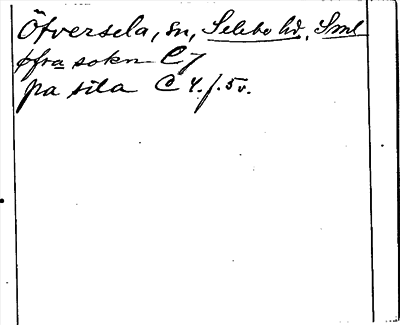 Öfversela, sn, Selebo hd, Sml
øfra sokn C 7
pa sila C 4. f. 5v.